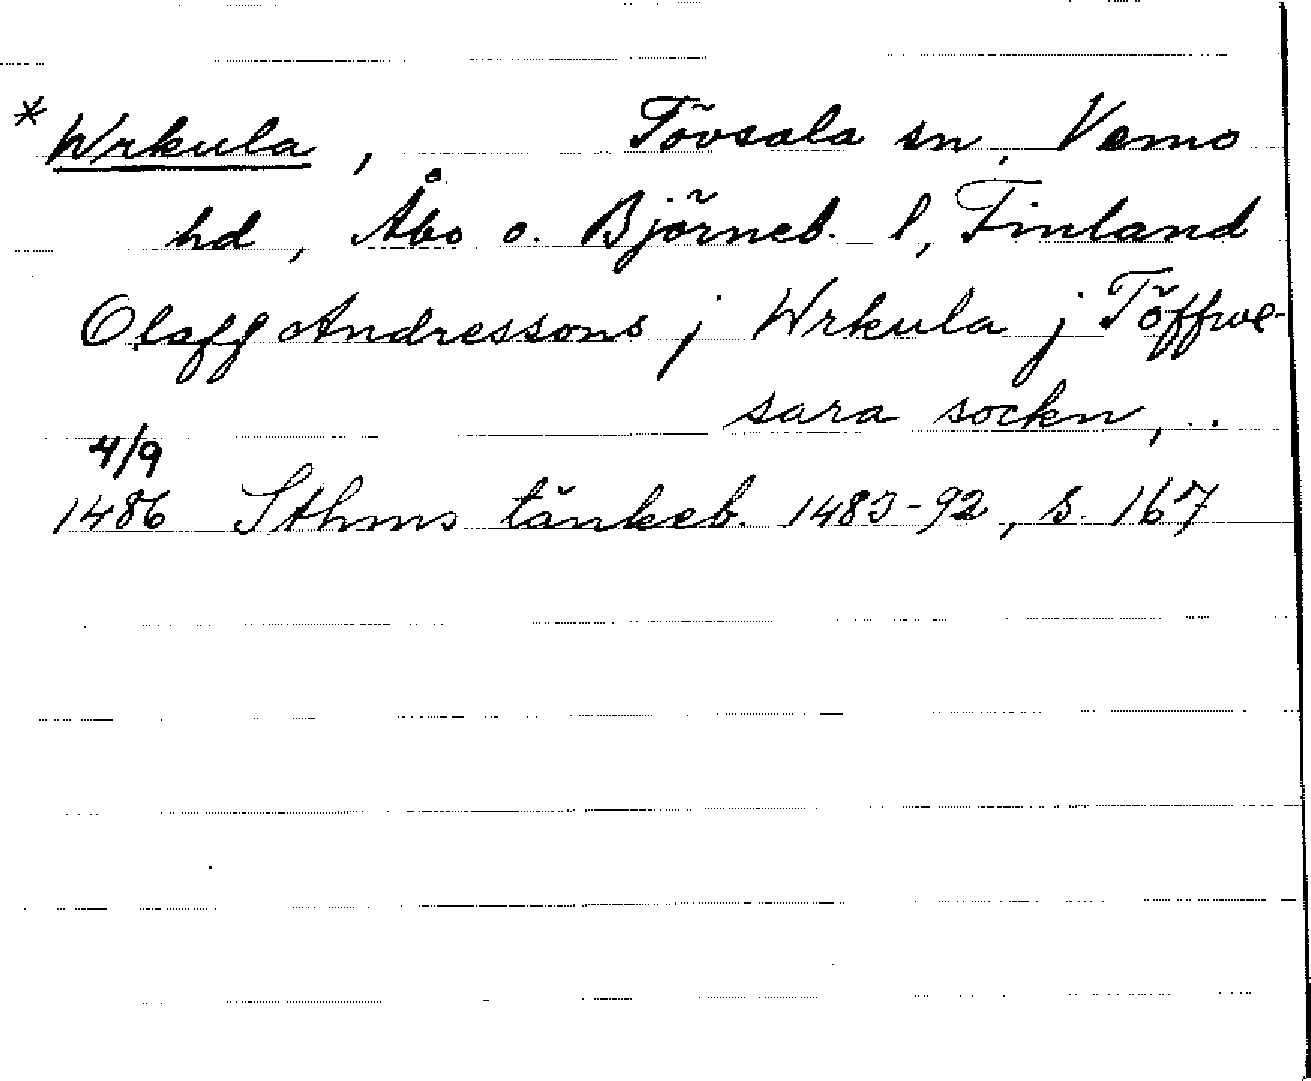 * Wrkula, Tövsala sn, Vemo
hd, Åbo o. Björneb. l, Finland
Olaff Andressons j Wrkula j Töffwe-
sara sockn, ..
4/9
1486 Sthms tänkeb. 1483-92, s. 167